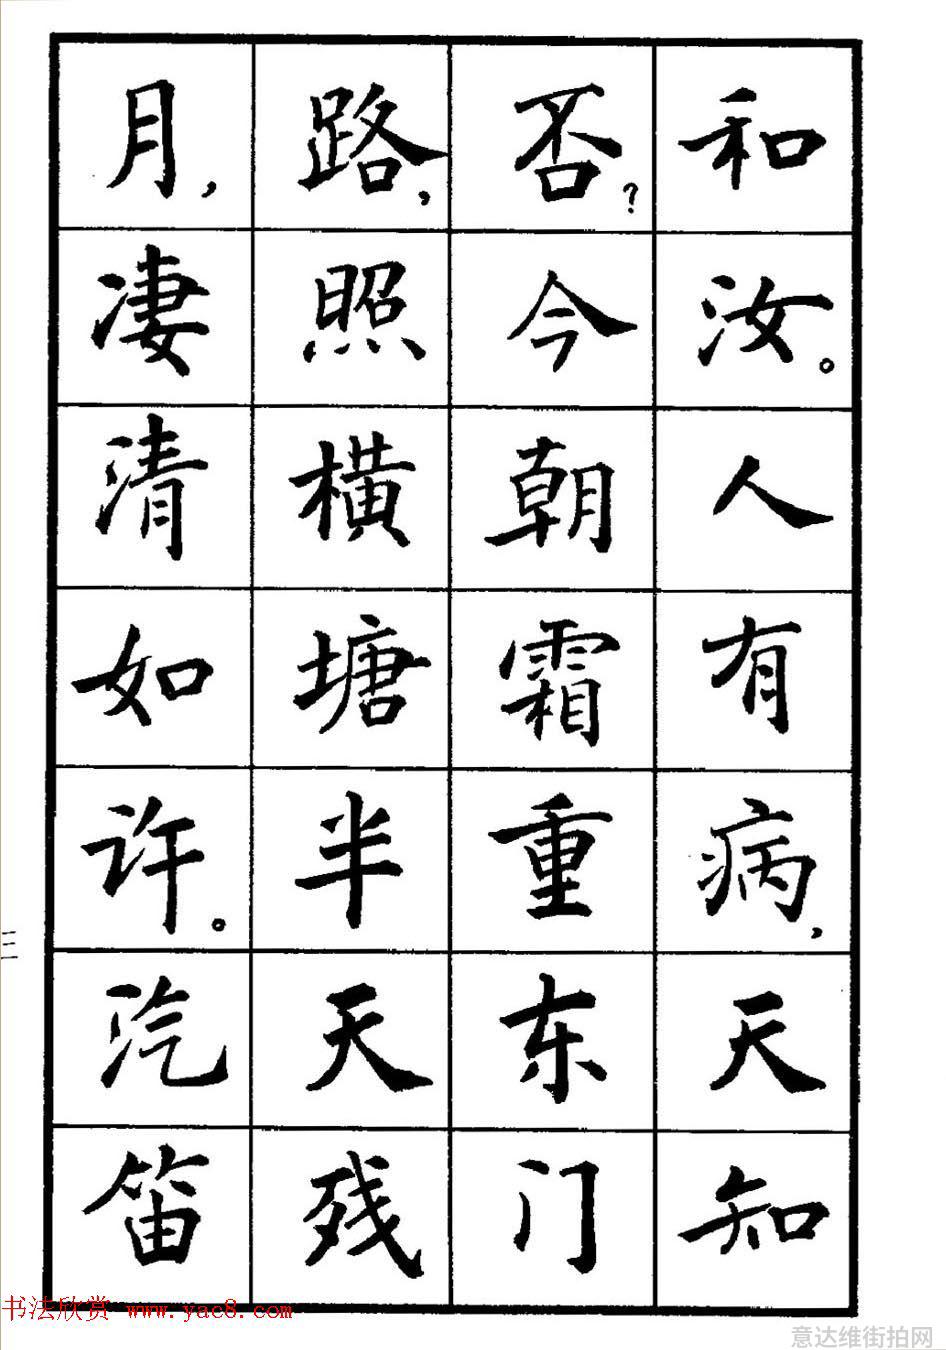 和汝。人有病，天知
否？今朝霜重东门
路，照横塘半天残
月，凄清如许。汽笛
二二
书法欣赏 www.yac8.com
意达维街拍网